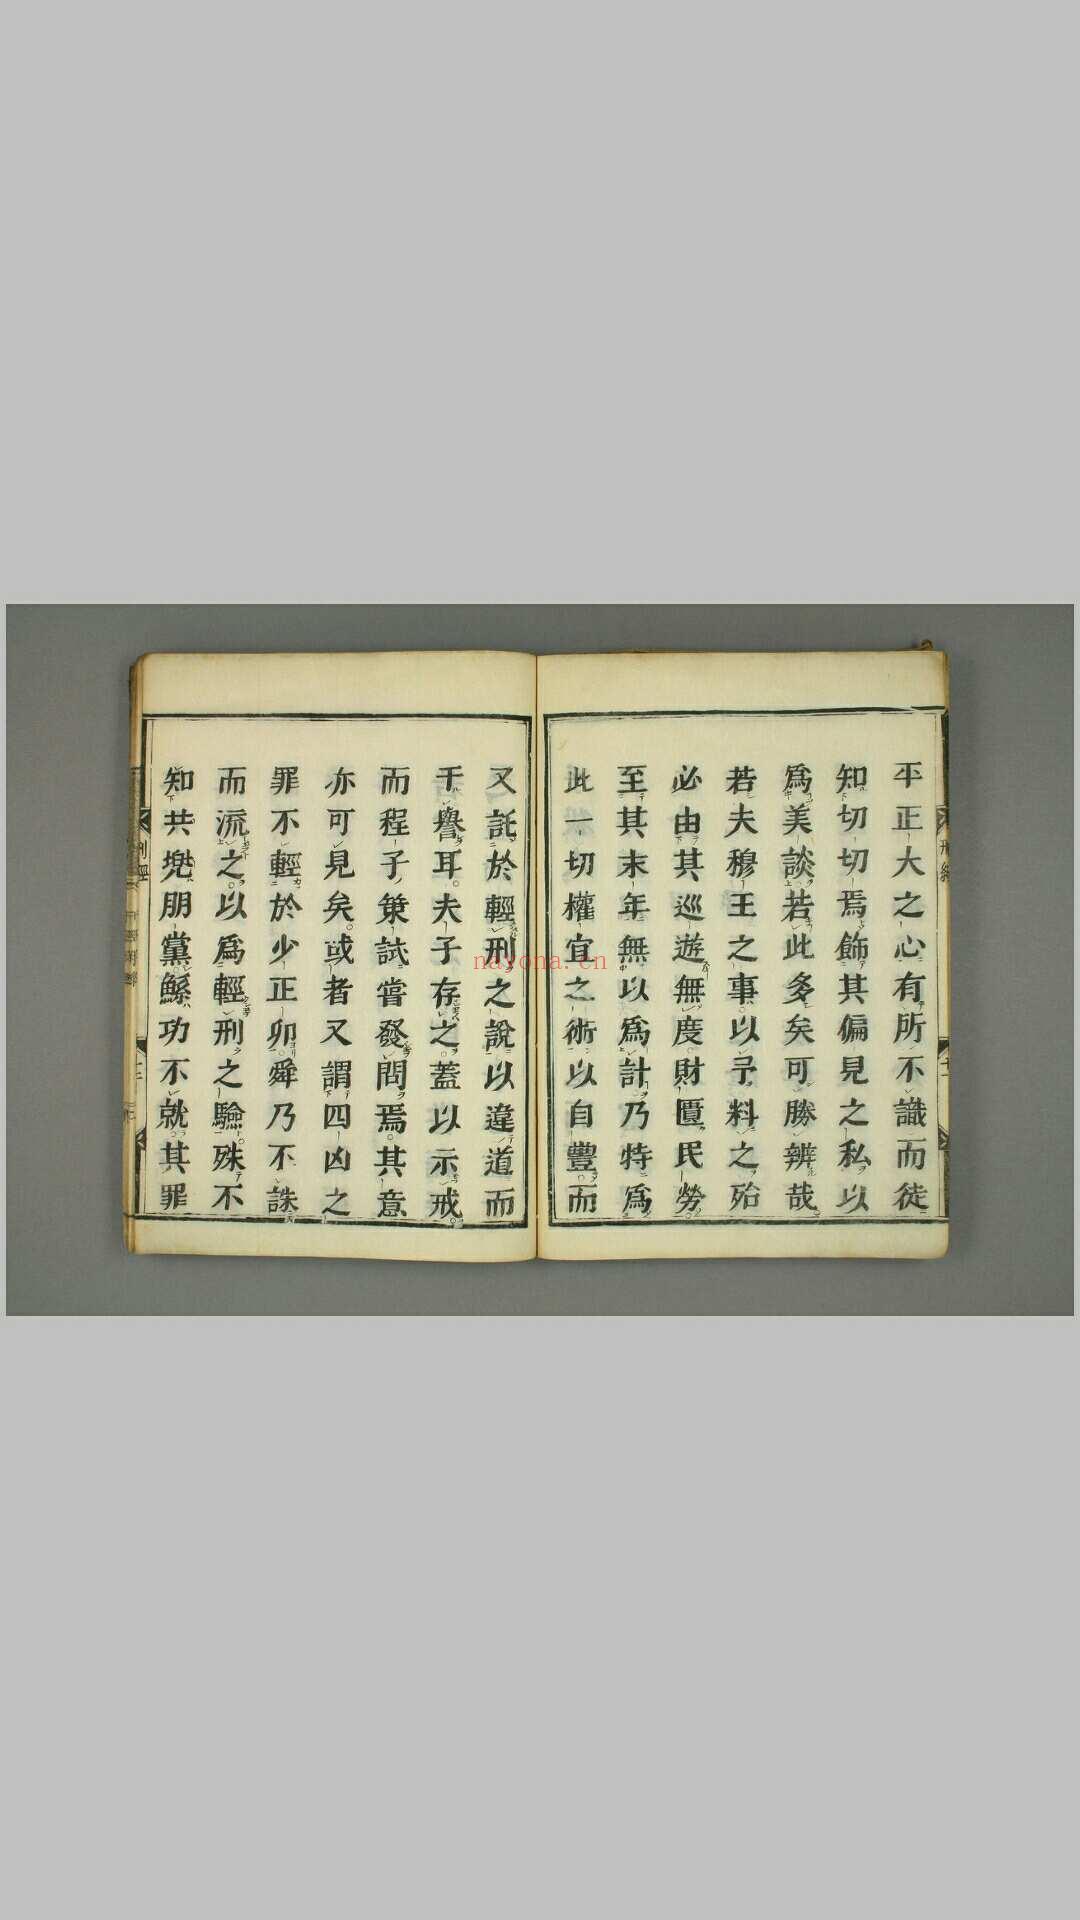 平正大之心有所不識而徒
知切切焉飾其偏見之私以
爲美談若此多矣可勝辨哉
若夫穆王之事以予料之殆
必由其巡遊無度財匱民勞
至其末年無以爲計乃特爲
此一切權宜之術以自豐而
又託於輕刑之說以違道而
干譽耳夫子存之蓋以示戒
而程子策試嘗發問焉其意
亦可見矣或者又謂四凶之
罪不輕於少正卯舜乃不誅
而流之以爲輕刑之驗殊不
知共兜朋黨鯀功不就其罪
nayona.cn